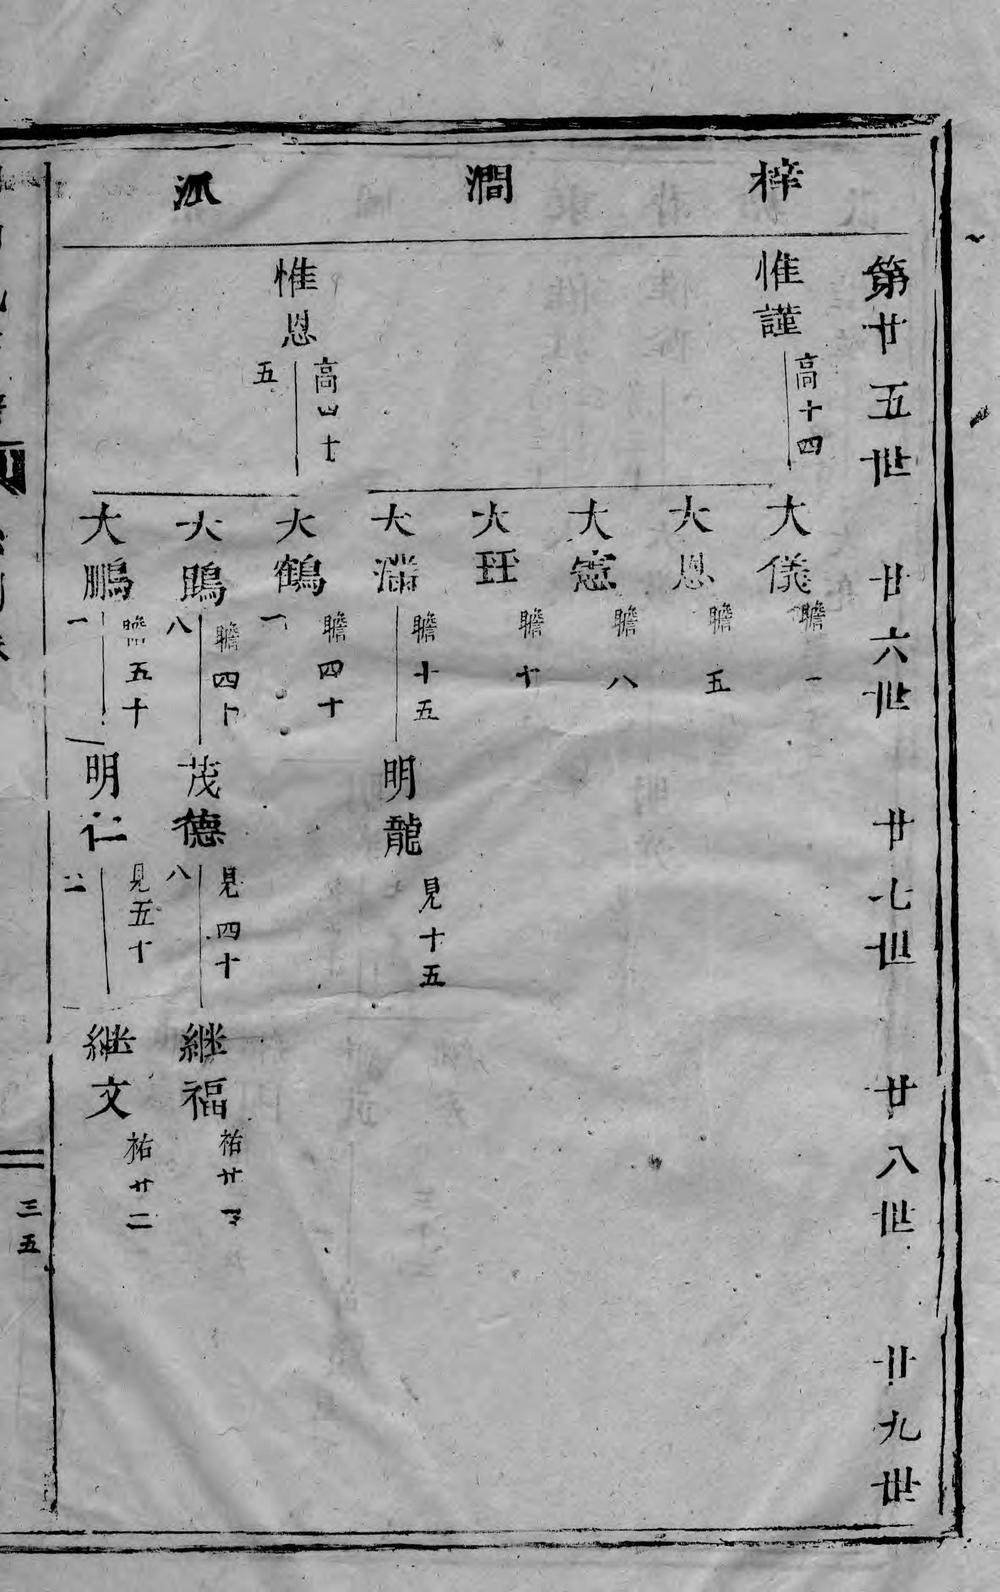 梓澗派
第廿五世
廿六世
廿七世
廿八世
廿九世
惟謹
高十四
惟恩
高四十五
大儀
瞻一
大恩
瞻五
大憲
瞻八
大玨
瞻十
大灊
瞻十五
大鶴
瞻四十一
大鵾
瞻四十八
大鵬
瞻五十一
明龍
見十五
茂德
見四十八
明仁
見五十二
継福
祐廿
継文
祐廿二
三五